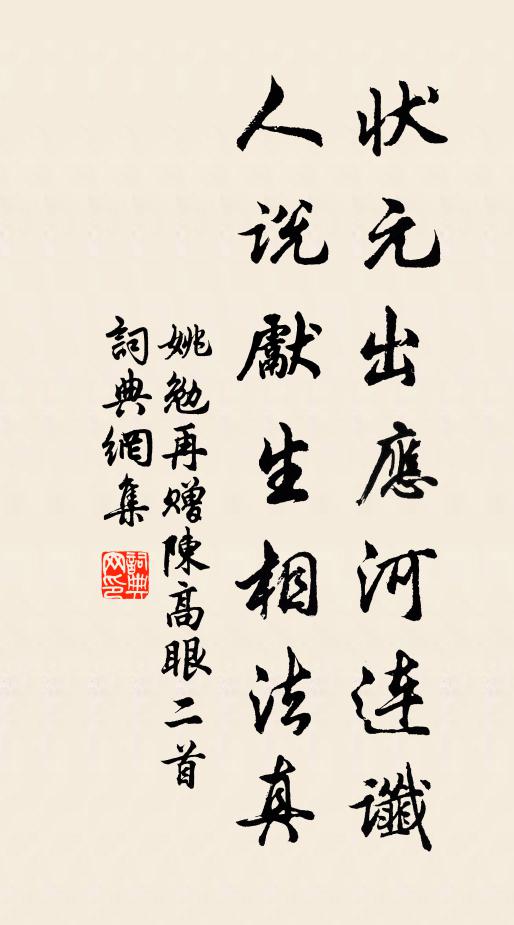 状元出應河连讖
人说獻生相法真
姚勉再赠陳高眼二首
詞典網集
詞典网印